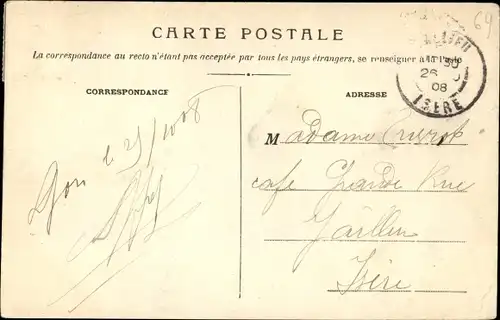 64
CARTE POSTALE
La correspondance au recto n'étant pas acceptée par tous les pays étrangers, se renseigner à la Poste
CORRESPONDANCE
ADRESSE
26
08
ISERE
Lyon le 25/ 1908
Madame
café Grande Rue
Jallieu
Isère